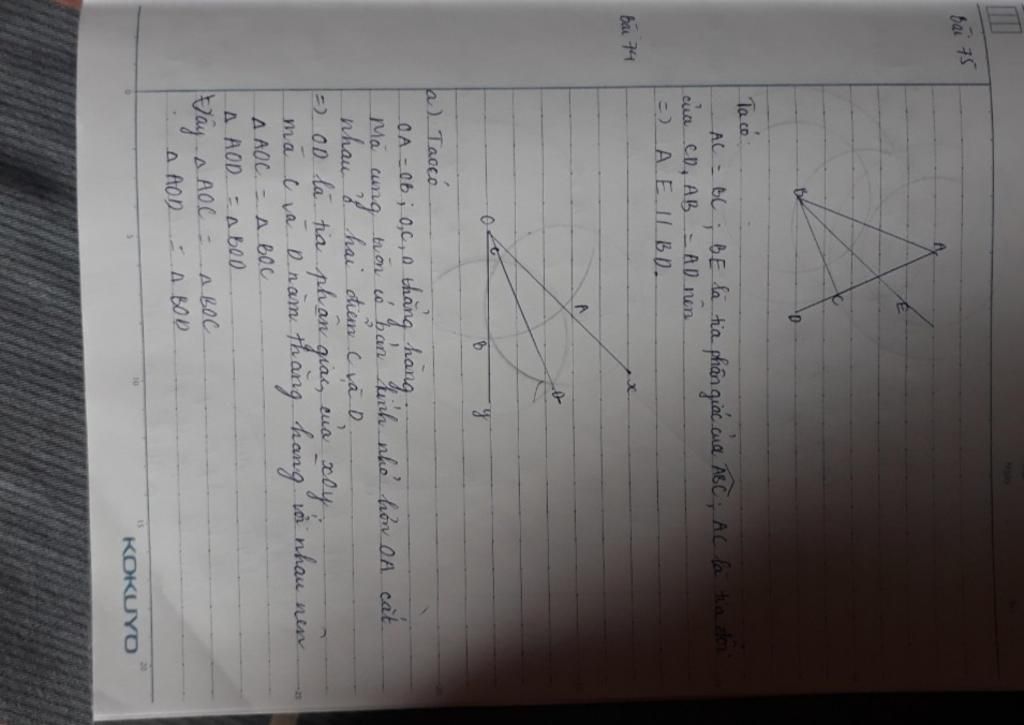 Bài 75
A
B
C
D
E
Ta có:
AC = BC ; BE là tia phân giác của ABC ; AC là tia đối
của CD, AB = AD nên
=> AE // BD.
Bài 74
O
C
A
x
B
D
y
a) Ta có
OA = OB ; O, C, D thẳng hàng
Mà cung tròn có bán kính nhỏ hơn OA cắt
nhau ở hai điểm C và D
=> OD là tia phân giác của xOy
mà C và D nằm thẳng hàng với nhau nên
△AOC = △BOC
△AOD = △BOD
Vậy △AOC = △BOC
△AOD = △BOD
KOKUYO
0
5
10
15
20